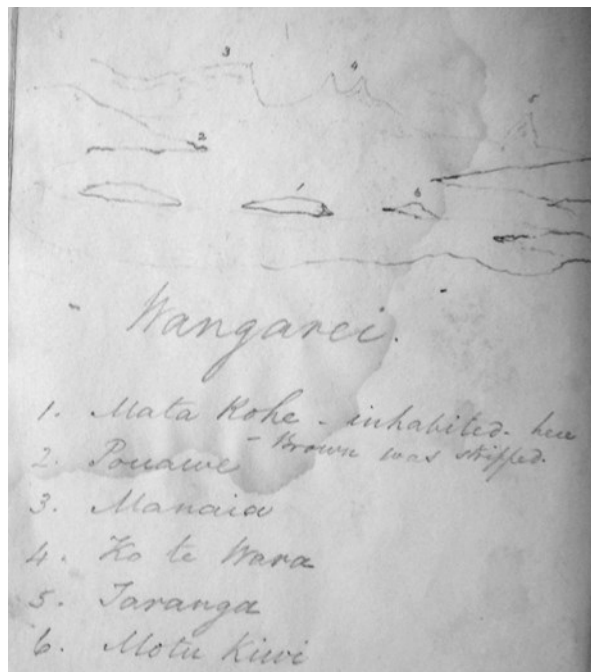 3
4
5
2
1
6
Wangarei.
1. Mata Kohe - inhabited - here
- Brown was stripped.
2. Pouawe
3. Manaia
4. Ko te Wara
5. Taranga
6. Motu Kiwi